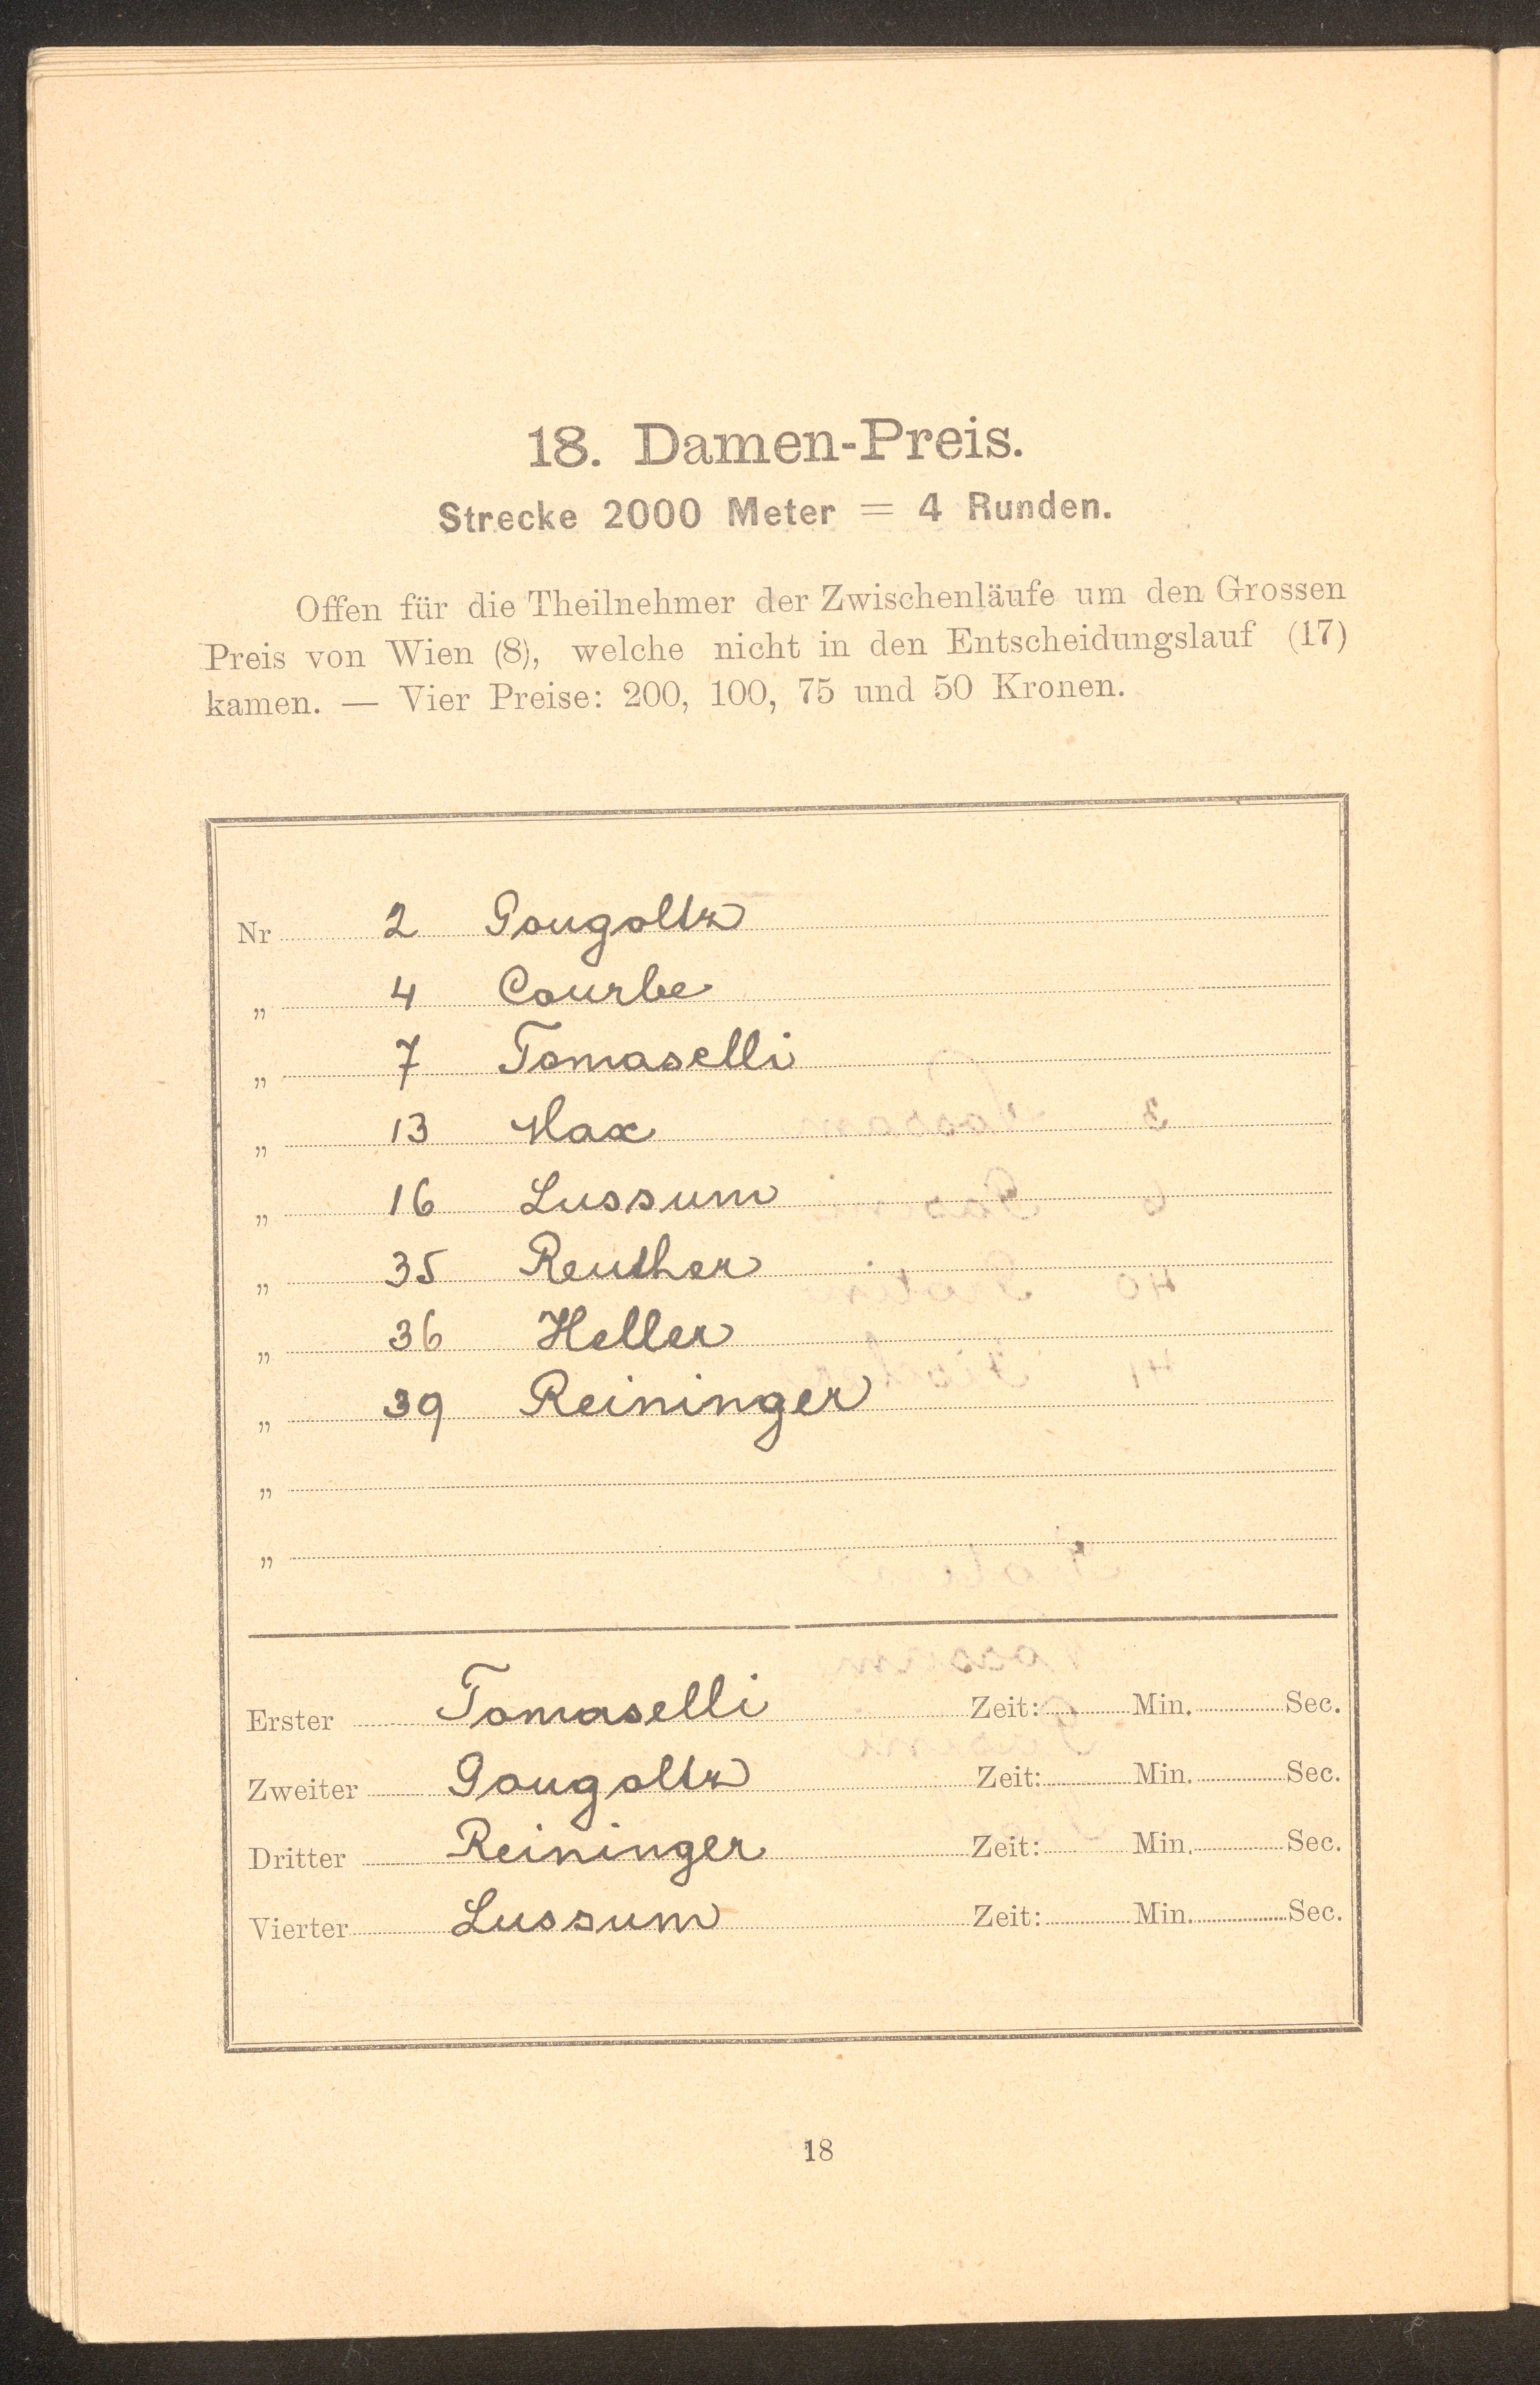 18. Damen-Preis.
Strecke 2000 Meter = 4 Runden.
Offen für die Theilnehmer der Zwischenläufe um den Grossen
Preis von Wien (8), welche nicht in den Entscheidungslauf (17)
kamen. — Vier Preise: 200, 100, 75 und 50 Kronen.
Nr 2 Gougoltz
„ 4 Courbe
„ 7 Tomaselli
„ 13 Max
„ 16 Lussum
„ 35 Reuther
„ 36 Heller
„ 39 Reininger
„
„
Erster Tomaselli Zeit: Min. Sec.
Zweiter Gougoltz Zeit: Min. Sec.
Dritter Reininger Zeit: Min. Sec.
Vierter Lussum Zeit: Min. Sec.
18